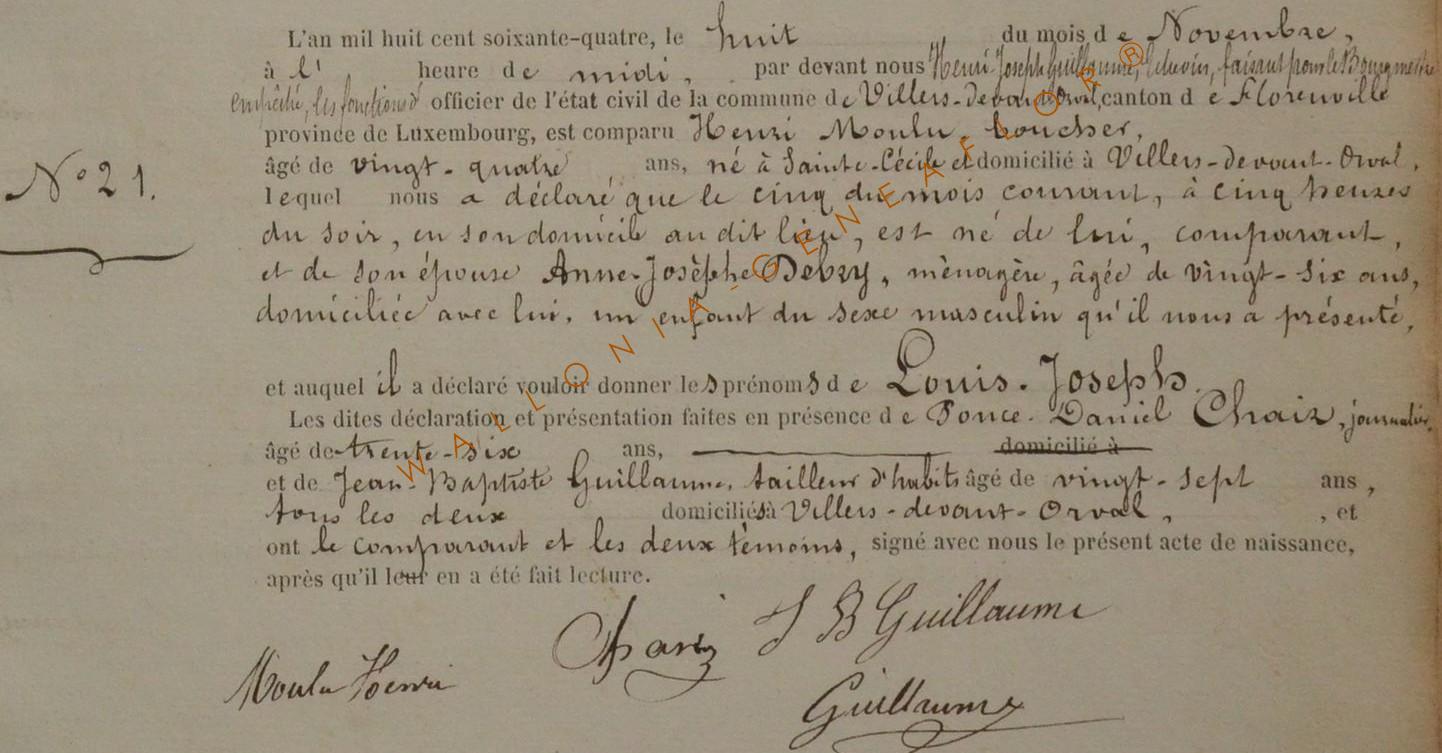 L'an mil huit cent soixante-quatre, le huit du mois de Novembre,
à l' heure de midi, par devant nous Henri-Joseph Guillaume, Echevin, faisant pour le Bourgmestre
empêché, les fonctions d' officier de l'état civil de la commune de Villers-devant-Orval, canton de Florenville
province de Luxembourg, est comparu Henri Moulu, boucher,
N° 21.
âgé de vingt-quatre ans, né à Sainte-Cécile et domicilié à Villers-devant-Orval,
lequel nous a déclaré que le cinq du mois courant, à cinq heures
du soir, en son domicile audit lieu, est né de lui, comparant,
et de son épouse Anne-Josèphe Debry, ménagère, âgée de vingt-six ans,
domiciliée avec lui, un enfant du sexe masculin qu'il nous a présenté,
et auquel il a déclaré vouloir donner les prénoms de Louis-Joseph.
Les dites déclaration et présentation faites en présence de Ponce-Daniel Chaiz, journalier,
âgé de trente-six ans, domicilié à
et de Jean-Baptiste Guillaume, tailleur d'habits âgé de vingt-sept ans,
tous les deux domiciliés à Villers-devant-Orval, , et
ont le comparant et les deux témoins, signé avec nous le présent acte de naissance,
après qu'il leur en a été fait lecture.
J B Guillaume
Moulu Henri
Guillaume
WALLONIA-GENEAFLOR®